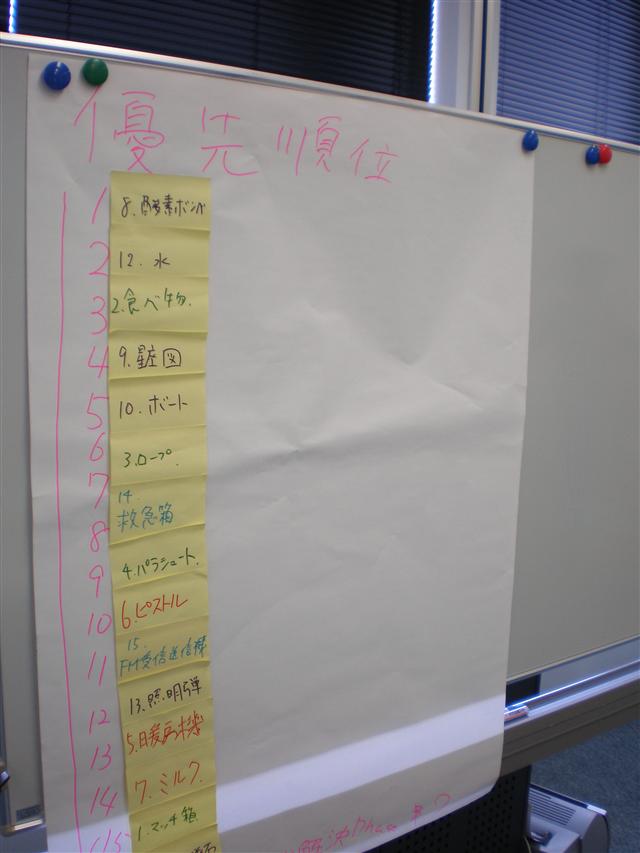 優先順位
1 8.酸素ボンベ
2 12.水
3 2.食べ物.
4 9.星座図
5 10.ボート
6 3.ロープ.
7 14.
救急箱
8
9 4.パラシュート.
10 6.ピストル
15.
11 FM受信送信機
12 13.照明弾
13 5.暖房機
14 7.ミルク.
15 1.マッチ箱
解決